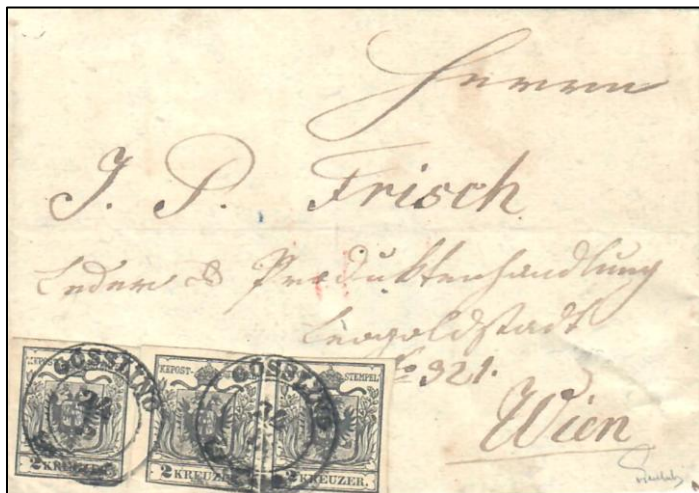 Herrn
J. P. Frisch
Leder & Produktenhandlung
Leopoldstadt
No 321.
Wien
GÖSSLING GÖSSLING
KKPOST- STEMPEL
2 KREUZER 2 KREUZER. 2 KREUZER.